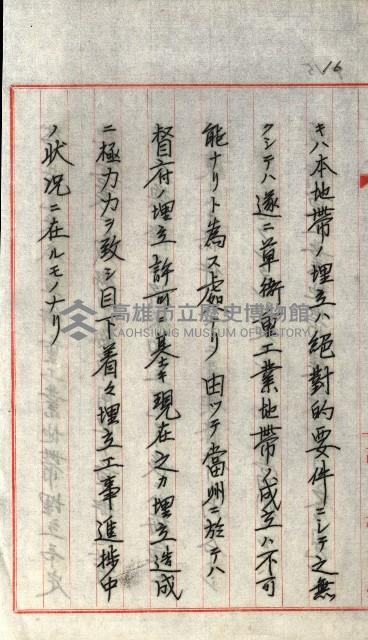 16
キハ本地帶ノ埋立ハ絕對的要件ニシテ之無
クシテハ遂ニ草衙重工業地帶ノ成立ハ不可
能ナリト為ス處ナリ由ツテ當州ニ於テハ
督府ノ埋立許可ニ基キ現在之カ埋立造成
ニ極力力ヲ致シ目下着々埋立工事進捗中
ノ狀況ニ在ルモノナリ
高雄市立歷史博物館
KAOHSIUNG MUSEUM OF HISTORY